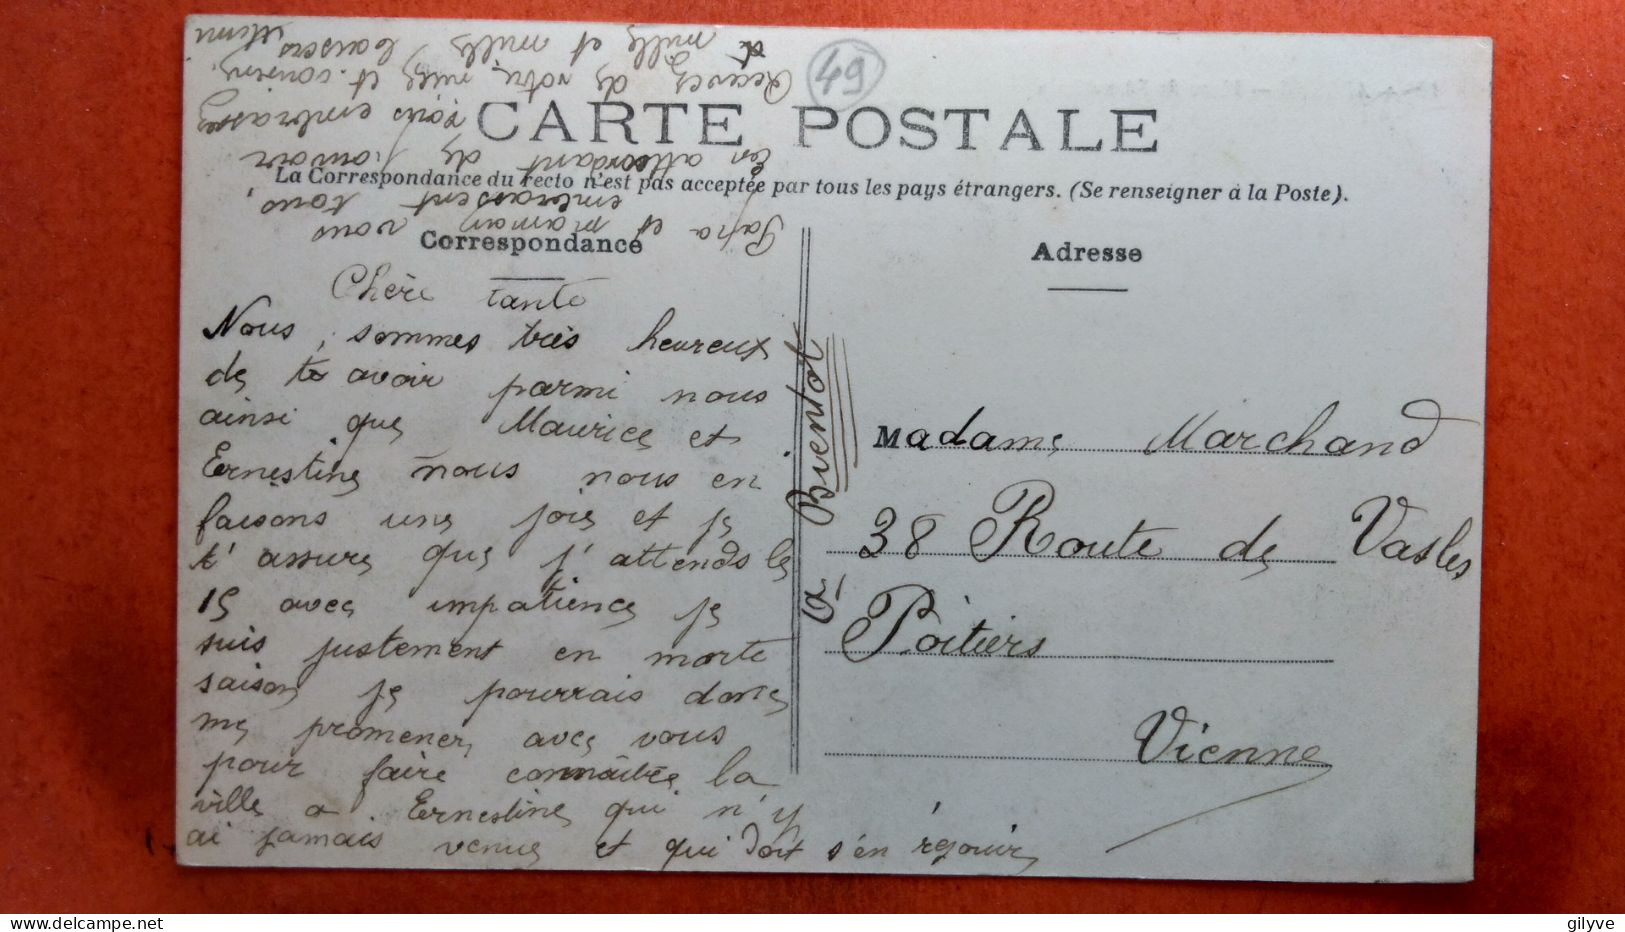 49
CARTE POSTALE
La Correspondance du recto n'est pas acceptée par tous les pays étrangers. (Se renseigner à la Poste).
Correspondance
Adresse
Chère tante
Nous sommes très heureux
de te avoir parmi nous
ainsi que Maurice et
Ernestine nous nous en
faisons une joie et je
t'assure que j'attends le
15 avec impatience je
suis justement en morte
saison je pourrais donc
me promener avec vous
pour faire connaître la
ville a Ernestine qui n'y
ai jamais venue et qui doit s'en réjouir
Papa et maman vous
embrassent tous,
En attendant de pouvoir
vous embrasser
Recevez de votre nièce et cousine
mille et mille baisers
A Bientot
Madame Marchand
38 Route de Vasles
Poitiers
Vienne
gilyve